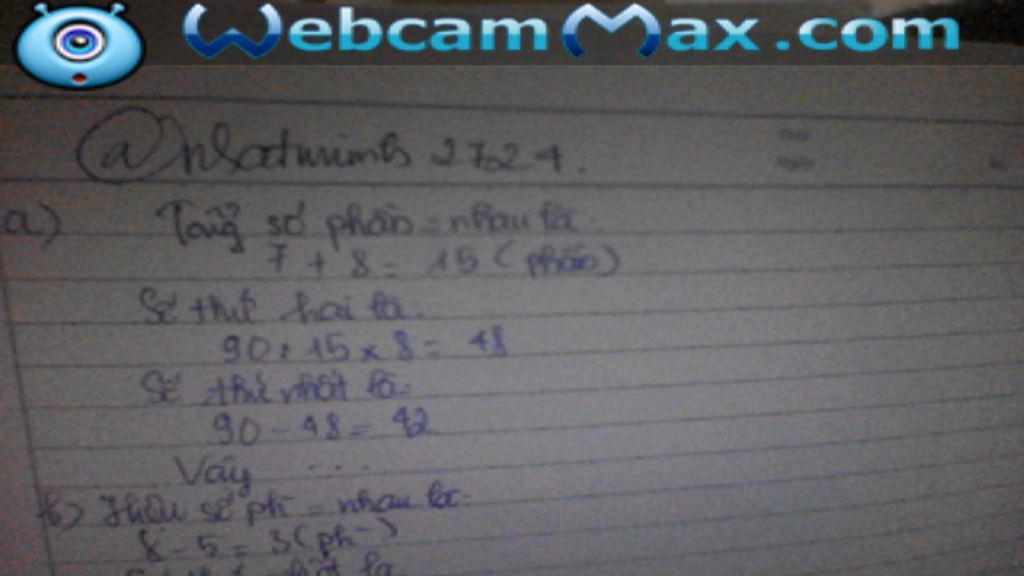 WebcamMax.com
@nhoctrinh 2724.
a) Tổng số phần = nhau là:
7 + 8 = 15 (phần)
Số thứ hai là:
90 : 15 x 8 = 48
Số thứ nhất là:
90 - 48 = 42
Vậy ....
b) Hiệu số ph = nhau là:
8 - 5 = 3 (ph)
là